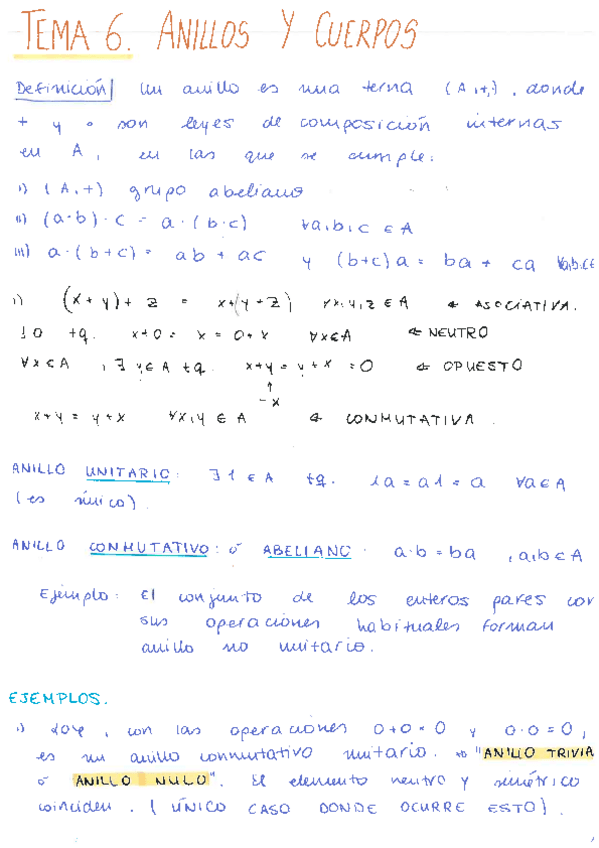 TEMA 6. ANILLOS Y CUERPOS
Definición| Un anillo es una terna (A,+,·), donde
+ y · son leyes de composición internas
en A, en las que se cumple:
i) (A,+) grupo abeliano
ii) (a·b)·c = a·(b·c) ∀a,b,c ∈ A
iii) a·(b+c) = ab + ac y (b+c)a = ba + ca ∀a,b,c∈
i) (x+y)+z = x+(y+z) ∀x,y,z ∈ A ← ASOCIATIVA.
∃ 0 tq. x+0 = x = 0+x ∀x∈A ← NEUTRO
∀x∈A , ∃ y∈A tq. x+y = y+x = 0 ← OPUESTO
↑
-x
x+y = y+x ∀x,y ∈ A ← CONMUTATIVA.
ANILLO UNITARIO: ∃ 1 ∈ A tq. 1a = a1 = a ∀a∈A
(es único).
ANILLO CONMUTATIVO: ó ABELIANO. a·b = ba , a,b∈A
Ejemplo: El conjunto de los enteros pares con
sus operaciones habituales forman
anillo no unitario.
EJEMPLOS.
i) {0}, con las operaciones 0+0=0 y 0·0=0,
es un anillo conmutativo unitario. → "ANILLO TRIVIA
ó ANILLO NULO". El elemento neutro y simétrico
coinciden. (ÚNICO CASO DONDE OCURRE ESTO).